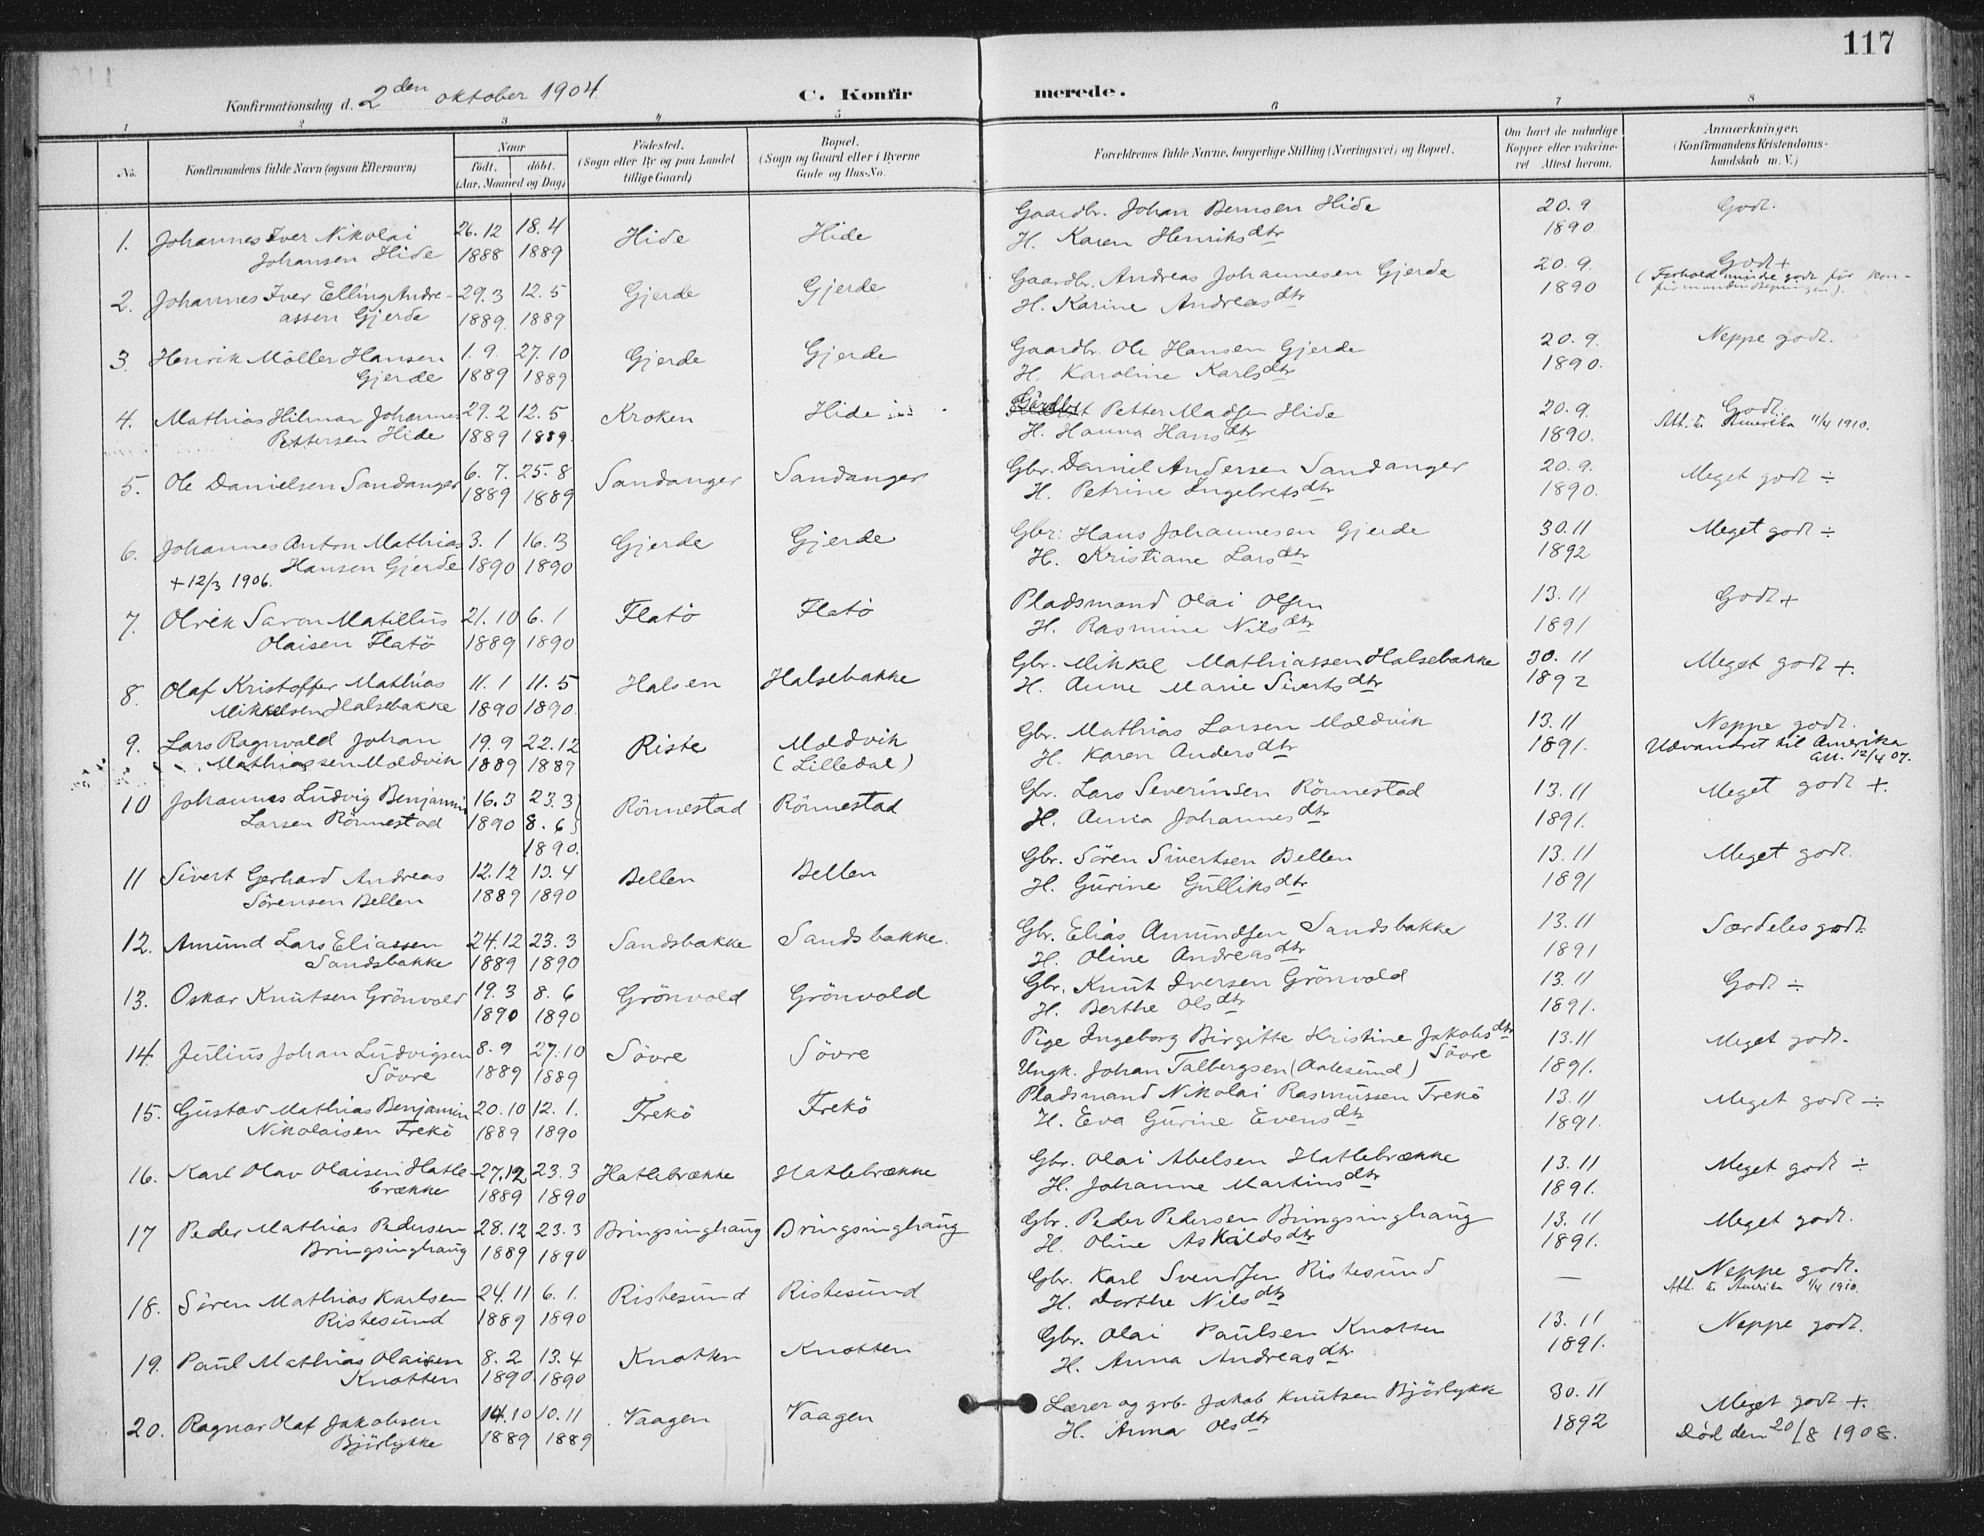 117
Konfirmationsdag d. 2den oktober 1904 C. Konfirmerede.
1 2 3 4 5 6 7 8
No. Konfirmandens fulde Navn (ogsaa Efternavn) Naar født. døbt. (Aar, Maaned og Dag) Fødested. (Sogn eller By og paa Landet tillige Gaard) Bopæl. (Sogn og Gaard eller i Byerne Gade og Hus-No. Forældrenes fulde Navne, borgerlige Stilling (Næringsvei) og Bopæl. Om havt de naturlige Kopper eller vakcineret. Attest herom. Anmærkninger. (Konfirmandens Kristendomskundskab m. V.)
1. Johannes Iver Nikolai 26.12 18.4 Hide Hide Gaardbr. Johan Bernsen Hide 20.9 Godt.
Johansen Hide 1888 1889 H. Karen Henriksdtr 1890
2. Johannes Iver Elling Andre- 29.3 12.5 Gjerde Gjerde Gaardbr. Andreas Johannesen Gjerde 20.9. Godt+
assen Gjerde 1889. 1889 H. Karine Andreasdtr 1890 (Forhold mindre godt før kon-
3. Henrik Möller Hansen 1.9. 27.10 Gjerde Gjerde Gaardbr. Ole Hansen Gjerde 20.9. Neppe godt.
Gjerde 1889 1889 H. Karoline Karlsdtr 1890.
4. Mathias Hilmar Johannes 29.2 12.5 Kroken Hide Gårdbr Petter Madsen Hide 20.9. Godt.
Pettersen Hide 1889 1889. H. Hanna Hansdtr 1890. Att. til Amerika 11/4 1910.
5. Ole Danielsen Sandanger 6.7. 25.8 Sandanger Sandanger Gbr. Daniel Andersen Sandanger 20.9. Meget godt ÷
1889 1889 H. Petrine Ingebretsdtr 1890.
6. Johannes Anton Mathias 3.1 16.3 Gjerde Gjerde Gbr: Hans Johannesen Gjerde 30.11 Meget godt ÷
Hansen Gjerde 1890 1890 H. Kristiane Larsdtr 1892
+ 12/3 1906.
7. Olrik Saron Matillus 21.10 6.1 Flatö Flatö Pladsmand Olai Olsen 13.11 Godt+
Olaisen Flatö 1889 1890 H. Rasmine Nilsdtr 1891
8. Olaf Kristoffer Mathias 11.1 11.5 Halsen Halsebakke Gbr. Mikkel Mathiassen Halsebakke 30.11 Meget godt +.
Mikkelsen Halsebakke 1890 1890. H. Anne Marie Sivertsdtr 1892
9. Lars Ragnvald Johan 19.9 22.12 Riste Moldvik Gbr. Mathias Larsen Moldvik 13.11 Neppe godt.
Mathiassen Moldvik 1889 1889 (Lilledal) H. Karen Andersdtr 1891. Udvandret til Amerika att. 12/4 07.
10 Johannes Ludvig Benjamin 16.3 23.3 Rönnestad Rönnestad Gbr. Lars Severinsen Rönnestad 13.11 Meget godt +.
Larsen Rönnestad 1890 8.6 H. Anna Johannesdtr 1891.
1890.
11 Sivert Gerhard Andreas 12.12 13.4 Bellen Bellen Gbr. Sören Sivertsen Bellen 13.11 Meget godt.
Sörensen Bellen 1889 1890 H. Gurine Gulliksdtr 1891
12. Amund Lars Eliassen 24.12 23.3 Sandsbakke Sandsbakke. Gbr. Elias Amundsen Sandsbakke 13.11 Særdeles godt.
Sandsbakke 1889 1890 H. Oline Andreasdtr 1891
13. Oskar Knutsen Grönvold 19.3 8.6 Grönvold Grönvold Gbr. Knut Iversen Grönvold 13.11 Godt ÷
1890 1890 H. Berthe Olsdtr 1891.
14. Julius Johan Ludvigsen 8.9 27.10 Sövre Sövre Pige Ingeborg Birgitte Kristine Jakobsdtr Sövre 13.11 Meget godt.
Sövre 1889 1889 Ungk. Johan Talbergsen (Aalesund) 1891.
15. Gustav Mathias Benjamin 20.10 12.1. Frekö Frekö Pladsmand Nikolai Rasmussen Frekö 13.11 Meget godt ÷
Nikolaisen Frekö 1889 1890 H. Eva Gurine Evensdtr 1891.
16. Karl Olav Olaisen Hatle- 27.12 23.3 Hatlebrække Hatlebrække Gbr. Olai Abelsen Hatlebrække 13.11 Meget godt ÷
brække 1889 1890 H. Johanne Martinsdtr 1891.
17 Peder Mathias Pedersen 28.12 23.3 Bringsinghaug Bringsinghaug Gbr. Peder Pedersen Bringsinghaug 13.11 Meget godt.
Bringsinghaug 1889 1890 H. Oline Askildsdtr 1891.
18. Sören Mathias Karlsen 24.11 6.1. Ristesund Ristesund Gbr. Karl Svendsen Ristesund — Neppe godt.
Ristesund 1889 1890 H. Dorthe Nilsdtr Att. til Amerika 1/4 1910.
19. Paul Mathias Olaisen 8.2 13.4 Knotten Knotten Gbr. Olai Paulsen Knotten 13.11 Neppe godt.
Knotten 1890. 1890 H. Anna Andreasdtr. 1891.
20. Ragnar Olaf Jakobsen 14.10 10.11 Vaagen Vaagen Lærer og grb. Jakob Knutsen Björlykke 30.11 Meget godt +.
Björlykke 1889 1889 H. Anna Olsdtr 1892 Död den 20/8 1908.